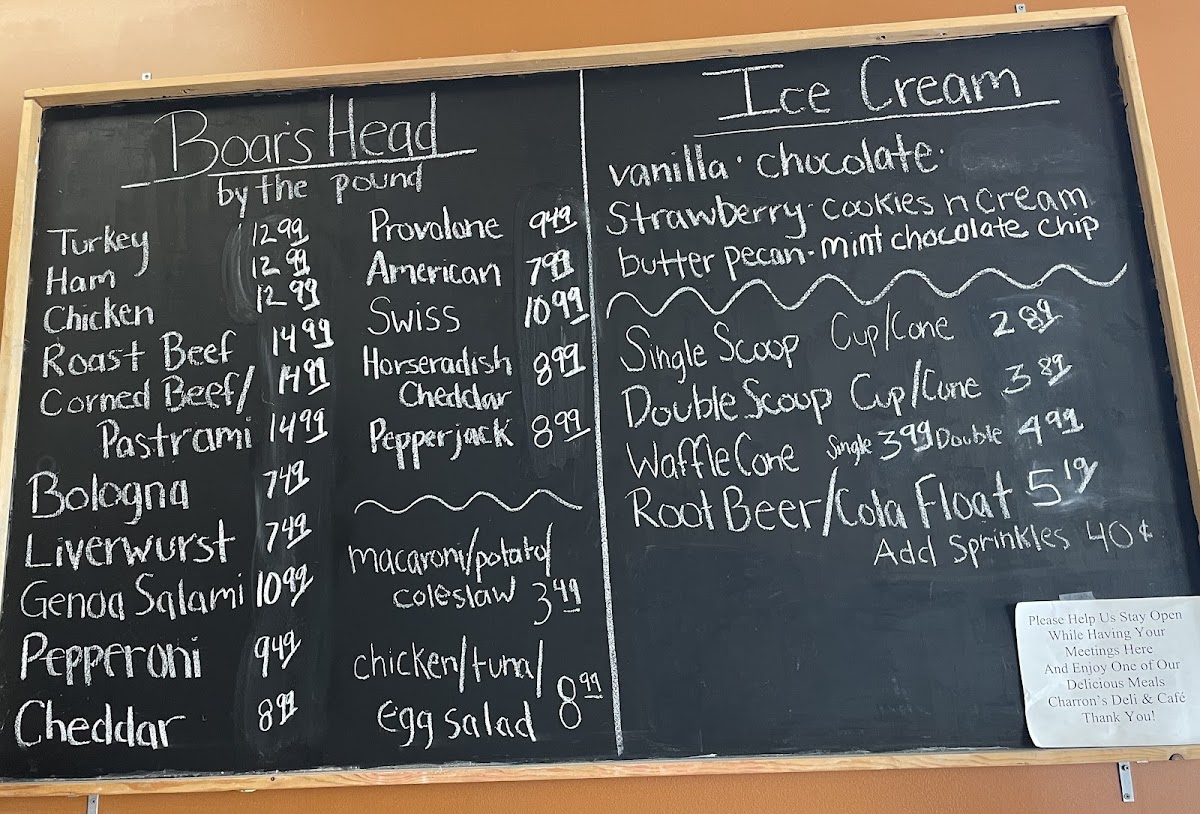 Boar's Head
by the pound
Turkey 12 99
Ham 12 99
Chicken 12 99
Roast Beef 14 99
Corned Beef/ 14 99
Pastrami 14 99
Bologna 7 49
Liverwurst 7 49
Genoa Salami 10 99
Pepperoni 9 49
Cheddar 8 99
Provolone 9 49
American 7 99
Swiss 10 99
Horseradish 8 99
Cheddar
Pepperjack 8 99
macaroni/potato/
coleslaw 3 49
chicken/tuna/
egg salad 8 99
Ice Cream
vanilla · chocolate ·
Strawberry · cookies n cream
butter pecan · mint chocolate chip
Single Scoop Cup/Cone 2 89
Double Scoop Cup/Cone 3 89
Waffle Cone Single 3 99 Double 4 99
Root Beer/Cola Float 5 19
Add Sprinkles 40¢
Please Help Us Stay Open
While Having Your
Meetings Here
And Enjoy One of Our
Delicious Meals
Charron's Deli & Café
Thank You!